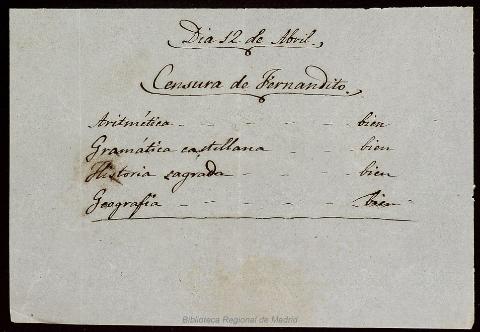 Dia 12. de Abril.
Censura de Fernandito.
Aritmética - - - - - - bien
Gramática castellana - - - bien
Historia sagrada - - - - bien
Geografía - - - - - - bien
Biblioteca Regional de Madrid